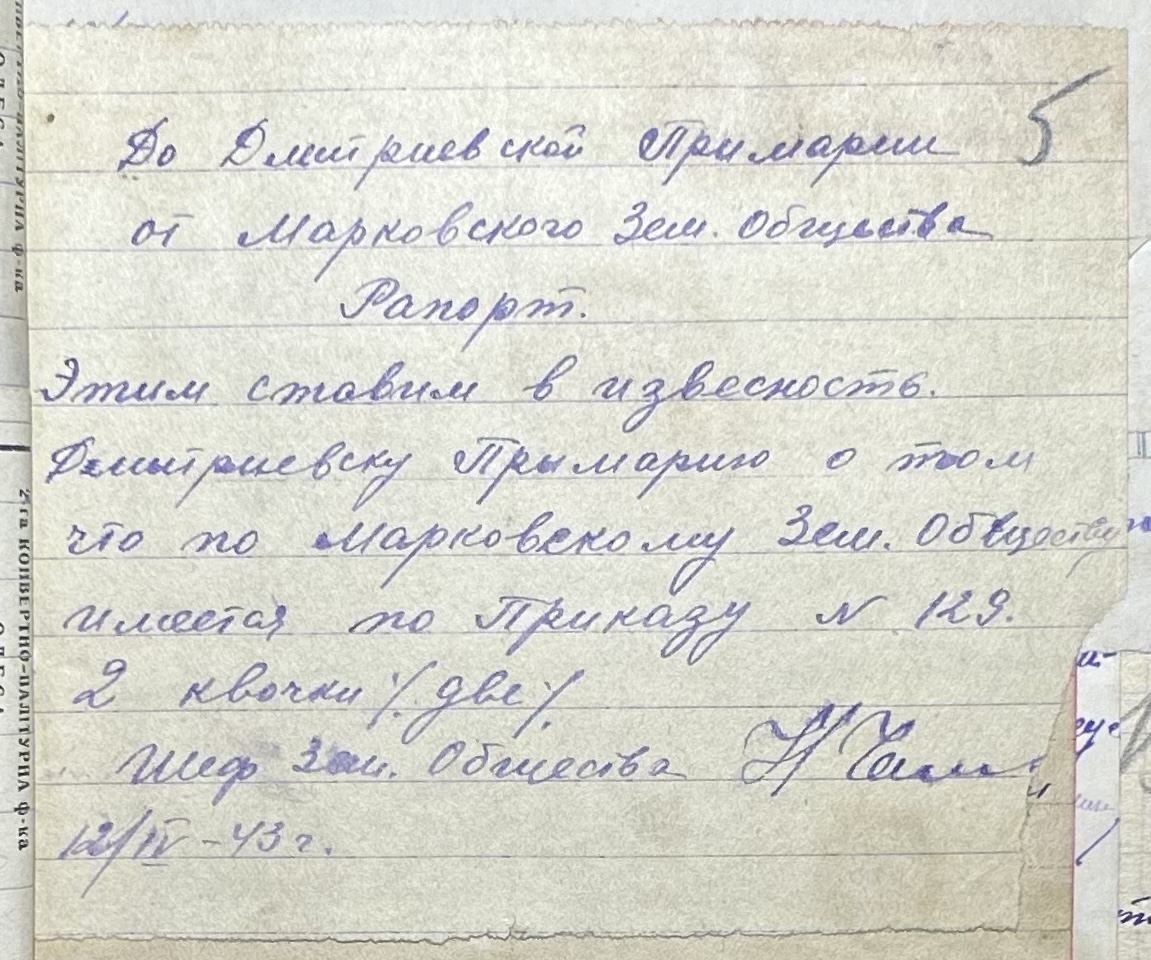 5
До Дмитриевской Примарии
от Марковского Зем. Общества
Рапорт.
Этим ставим в извесность.
Дмитриевску Прымарию о том
что по Марковскому Зем. Обществу
имеется по Приказу N 129.
2 квочки ·/. две ·/.
Шеф Зем. Общества
12/IV – 43 г.
2-га КОНВЕРТНО-ПАЛІТУРНА Ф-ка